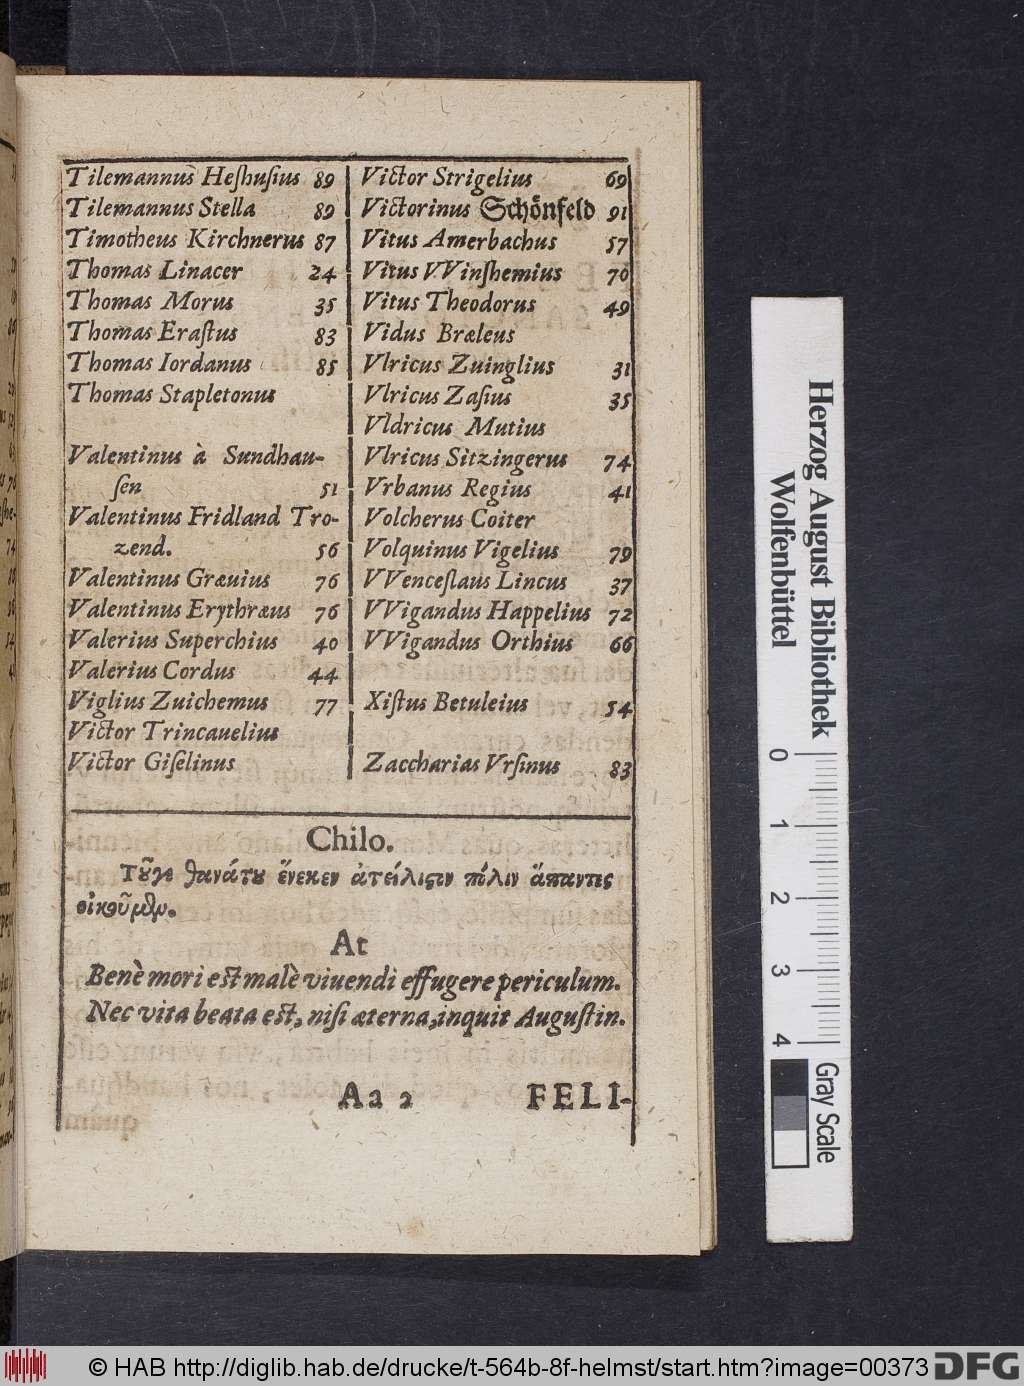 Tilemannus Heshusius 89
Tilemannus Stella 89
Timotheus Kirchnerus 87
Thomas Linacer 24
Thomas Morus 35
Thomas Erastus 83
Thomas Iordanus 85
Thomas Stapletonus
Valentinus à Sundhau-
sen 51
Valentinus Fridland Tro-
zend. 56
Valentinus Græuius 76
Valentinus Erythræus 76
Valerius Superchius 40
Valerius Cordus 44
Viglius Zuichemus 77
Victor Trincauelius
Victor Giselinus
Victor Strigelius 69
Victorinus Schönfeld 91
Vitus Amerbachus 57
Vitus VVinshemius 70
Vitus Theodorus 49
Vidus Bræleus
Vlricus Zuinglius 31
Vlricus Zasius 35
Vldricus Mutius
Vlricus Sitzingerus 74
Vrbanus Regius 41
Volcherus Coiter
Volquinus Vigelius 79
VVenceslaus Lincus 37
VVigandus Happelius 72
VVigandus Orthius 66
Xistus Betuleius 54
Zaccharias Vrsinus 83
Chilo.
θανάτου ἕνεκεν ἀτείχιστον πόλιν ἅπαντες
οἰκοῦμεν.
At
Benè mori est malè viuendi effugere periculum.
Nec vita beata est, nisi æterna, inquit Augustin.
Aa 2 FELI-
Herzog August Bibliothek
Wolfenbüttel
0 1 2 3 4
Gray Scale
© HAB http://diglib.hab.de/drucke/t-564b-8f-helmst/start.htm?image=00373
DFG